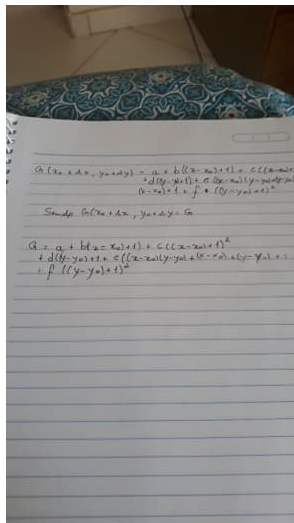 G(x₀ + Δx, y₀ + Δy) = a + b((x - x₀) + 1) + c((x - x₀
+ d(y - y₀) + 1) + e(x - x₀)(y - y₀)
(x - x₀) + 1 + f * ((y - y₀) + 1)²
G(x₀ + Δx, y₀ + Δy = G
G = a + b(x = x₀) + 1) + c((x - x₀) + 1)²
+ d(y - y₀) + 1 + e((x - x₀)(y - y₀) + (x - x₀) + (y - y₀) + 1
+ f ((y - y₀) + 1)²